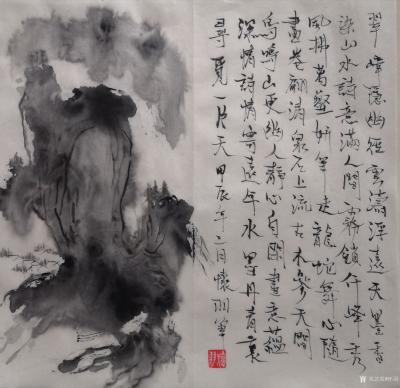 翠峰隱幽徑雲濤浮遠天墨香
染山水詩意滿人間霧鎖仟峰秀
風拂萬壑妍筆走龍蛇舞心隨
畫卷翩清泉石上流古木參天間
鳥鳴山更幽人靜心自閑畫意蘊
深情詩情寄遠年水墨丹青裏
尋覓一片天甲辰年二月懷